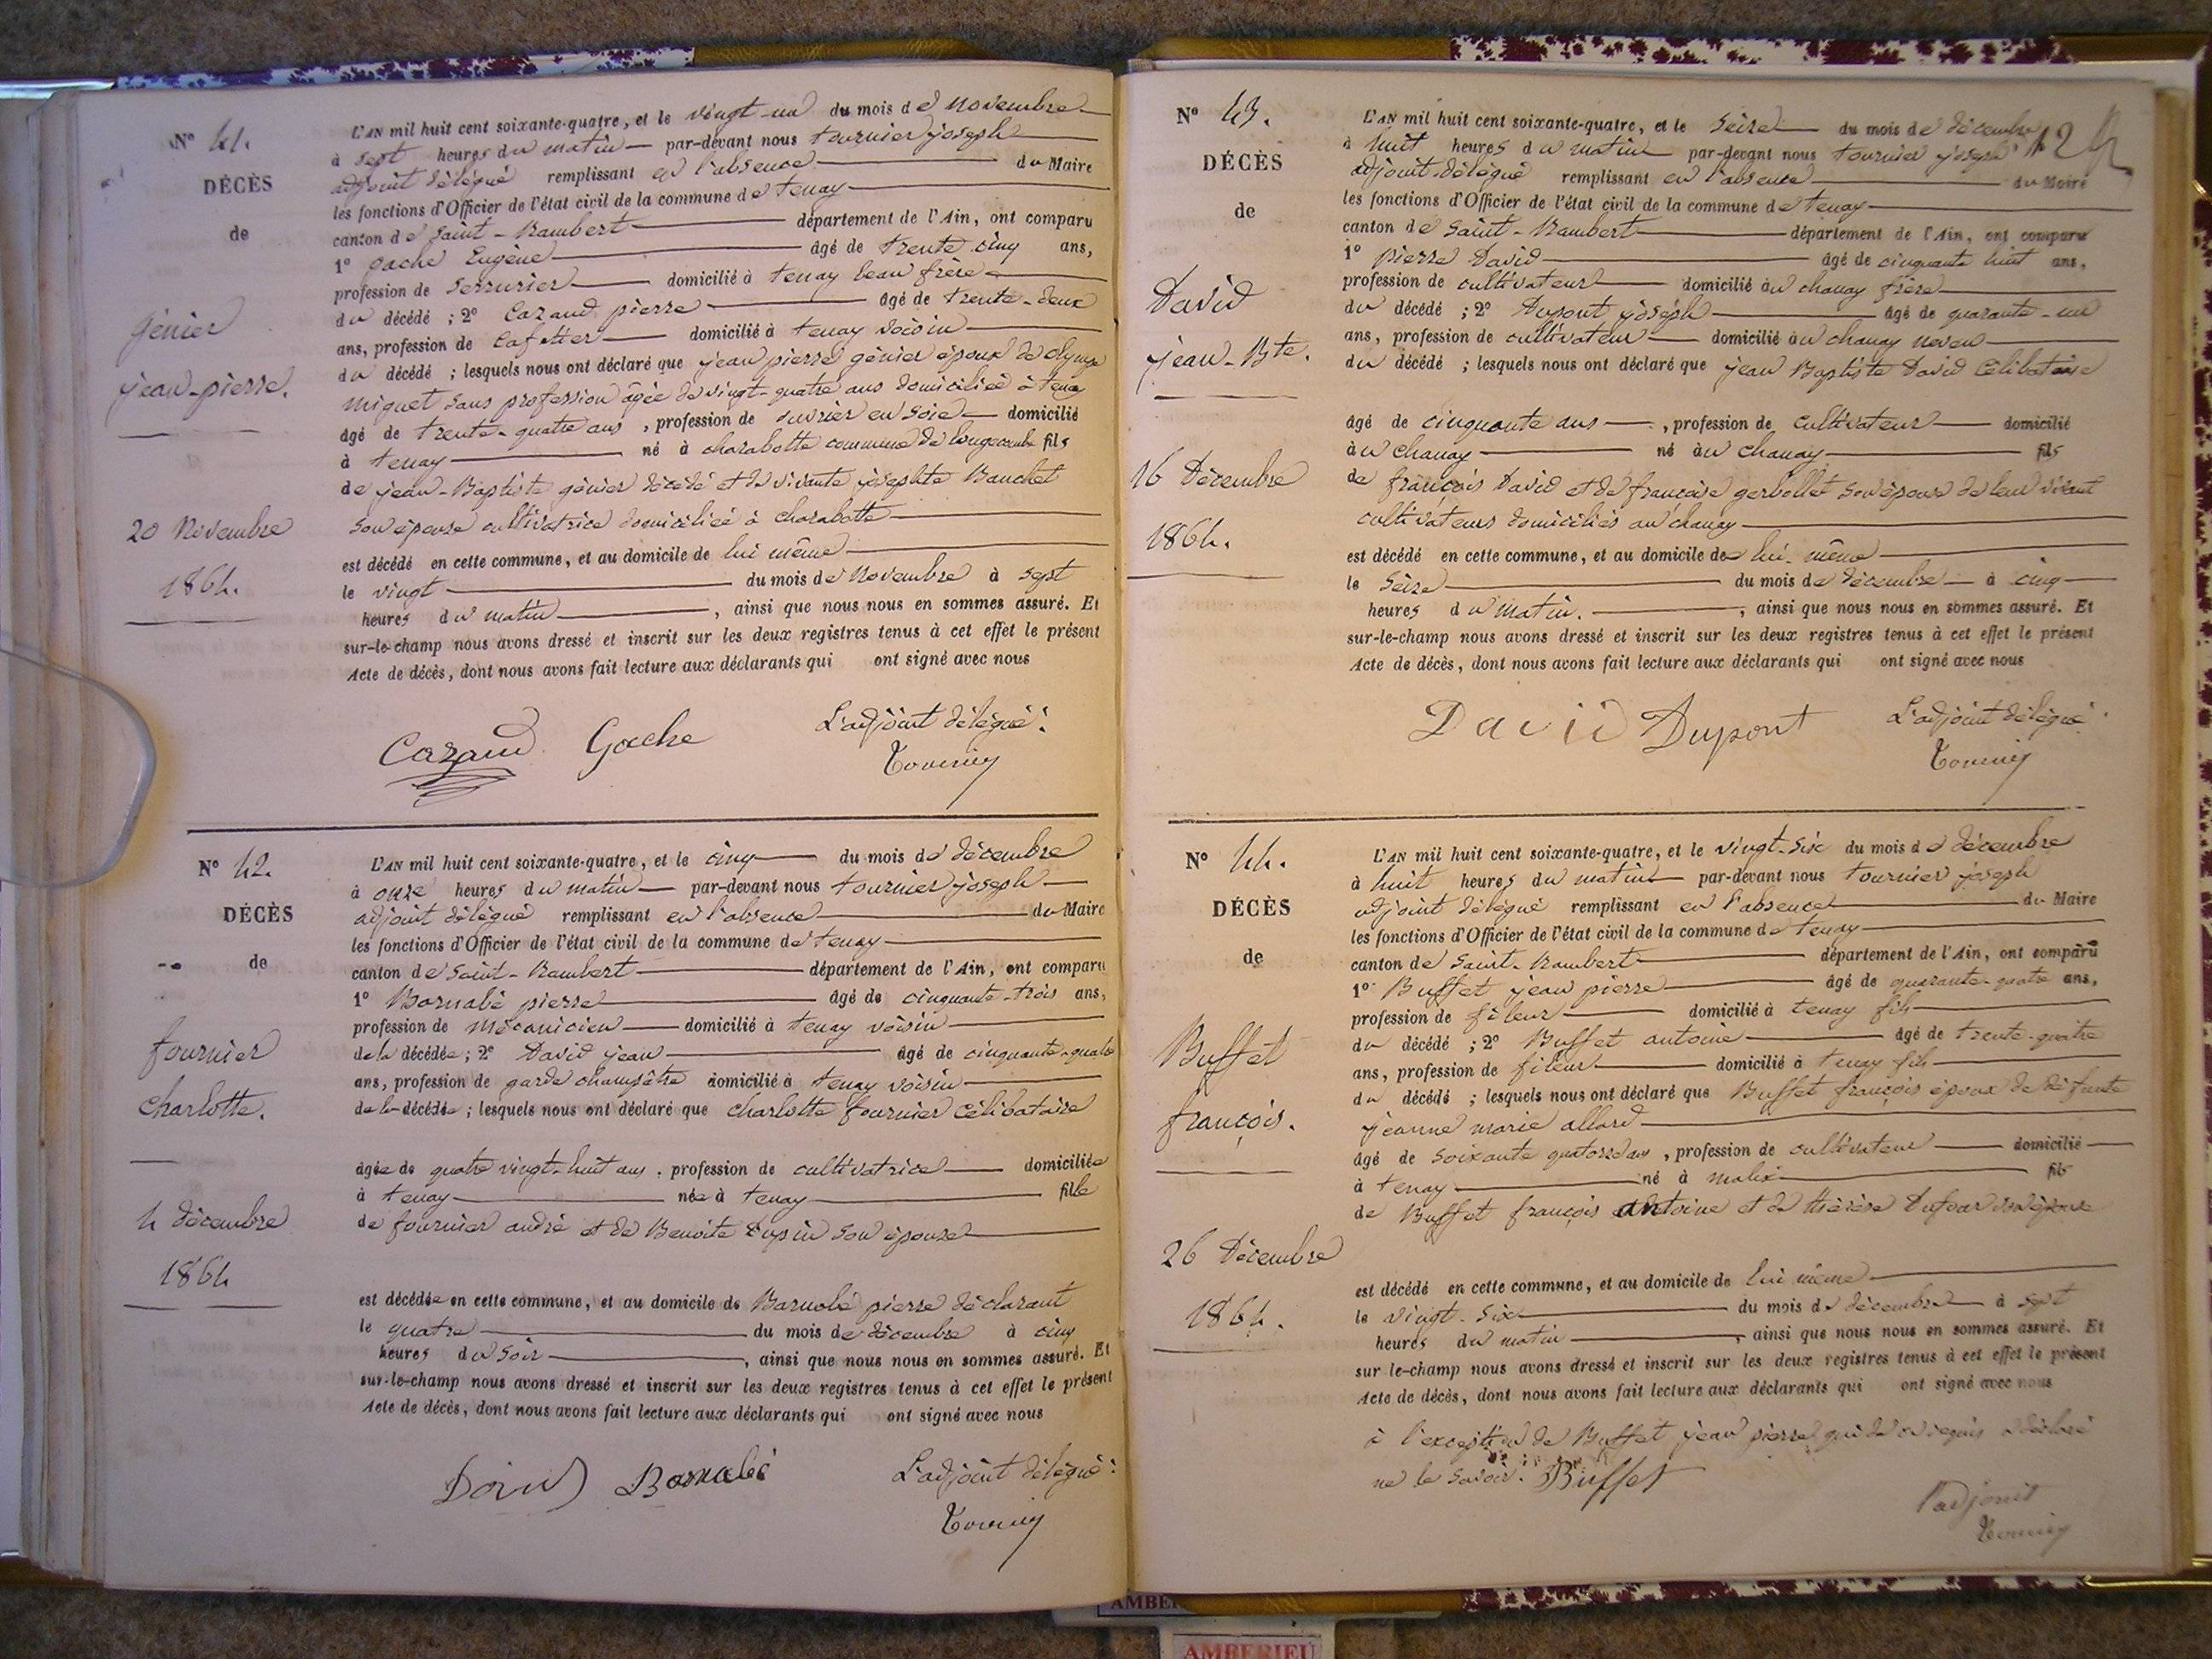 N° 41.
DÉCÈS
de
génier
jean-pierre.
20 Novembre
1864.
L'AN mil huit cent soixante-quatre, et le vingt-un du mois de Novembre
à sept heures du matin par-devant nous tournier joseph
adjoint délégué remplissant en l'absence du Maire
les fonctions d'Officier de l'état civil de la commune de tenay
canton de Saint-Rambert département de l'Ain, ont comparu
1° gache Eugène âgé de trente cinq ans,
profession de Serrurier domicilié à tenay beau frère
du décédé ; 2° Cazaud pierre âgé de trente-deux
ans, profession de Cafetier domicilié à tenay voisin
du décédé ; lesquels nous ont déclaré que jean pierre génier époux de olympe
miguet sans profession âgée de vingt-quatre ans domiciliée à tenay
âgé de trente-quatre ans , profession de ouvrier en soie domicilié
à tenay né à charabotte commune de longecombe fils
de jean-Baptiste génier décédé et de vivante josephte Bauchet
son épouse cultivatrice domiciliée à charabotte
est décédé en cette commune, et au domicile de lui même
le vingt du mois de Novembre à sept
heures du matin , ainsi que nous nous en sommes assuré. Et
sur-le-champ nous avons dressé et inscrit sur les deux registres tenus à cet effet le présent
Acte de décès, dont nous avons fait lecture aux déclarants qui ont signé avec nous
Cazaud Gache L'adjoint délégué :
Tournier
N° 42.
DÉCÈS
de
fournier
charlotte.
4 décembre
1864
L'AN mil huit cent soixante-quatre, et le cinq du mois de décembre
à onze heures du matin par-devant nous tournier joseph
adjoint délégué remplissant en l'absence du Maire
les fonctions d'Officier de l'état civil de la commune de tenay
canton de Saint-Rambert département de l'Ain, ont comparu
1° Barnabé pierre âgé de cinquante-trois ans,
profession de mécanicien domicilié à tenay voisin
de la décédée ; 2° David jean âgé de cinquante-quatre
ans, profession de garde champêtre domicilié à tenay voisin
de la décédée ; lesquels nous ont déclaré que charlotte fournier célibataire
âgée de quatre vingt-huit ans , profession de cultivatrice domiciliée
à tenay née à tenay fille
de fournier andré et de Benoite Dupin son épouse
est décédée en cette commune, et au domicile de Barnabé pierre déclarant
le quatre du mois de décembre à cinq
heures du soir , ainsi que nous nous en sommes assuré. Et
sur-le-champ nous avons dressé et inscrit sur les deux registres tenus à cet effet le présent
Acte de décès, dont nous avons fait lecture aux déclarants qui ont signé avec nous
David Barnabé L'adjoint délégué :
Tournier
N° 43.
DÉCÈS
de
David
jean-Bte.
16 Décembre
1864.
L'AN mil huit cent soixante-quatre, et le Seize du mois de décembre
à huit heures du matin par-devant nous tournier joseph
adjoint-délégué remplissant en l'absence du Maire
les fonctions d'Officier de l'état civil de la commune de tenay
canton de Saint-Rambert département de l'Ain, ont comparu
1° pierre David âgé de cinquante huit ans,
profession de cultivateur domicilié au chanay frère
du décédé ; 2° Dupont joseph âgé de quarante-un
ans, profession de cultivateur domicilié au chanay neveu
du décédé ; lesquels nous ont déclaré que jean Baptiste David célibataire
âgé de cinquante ans , profession de cultivateur domicilié
au chanay né au chanay fils
de françois David et de françoise gerbollet son épouse de leur vivant
cultivateurs domiciliés au chanay
est décédé en cette commune, et au domicile de lui-même
le Seize du mois de décembre à cinq
heures du matin. , ainsi que nous nous en sommes assuré. Et
sur-le-champ nous avons dressé et inscrit sur les deux registres tenus à cet effet le présent
Acte de décès, dont nous avons fait lecture aux déclarants qui ont signé avec nous
David Dupont L'adjoint délégué :
Tournier
N° 44.
DÉCÈS
de
Buffet
françois.
26 Décembre
1864.
L'AN mil huit cent soixante-quatre, et le vingt-six du mois de décembre
à huit heures du matin par-devant nous tournier joseph
adjoint délégué remplissant en l'absence du Maire
les fonctions d'Officier de l'état civil de la commune de tenay
canton de Saint-Rambert département de l'Ain, ont comparu
1° Buffet jean pierre âgé de quarante-quatre ans,
profession de fileur domicilié à tenay fils
du décédé ; 2° Buffet antoine âgé de trente-quatre
ans, profession de fileur domicilié à tenay fils
du décédé ; lesquels nous ont déclaré que Buffet françois époux de défunte
jeanne marie allard
âgé de soixante quatorze ans , profession de cultivateur domicilié
à tenay né à malix fils
de Buffet françois antoine et de thérèse Dufour son épouse
est décédé en cette commune, et au domicile de lui même
le vingt-six du mois de décembre à sept
heures du matin , ainsi que nous nous en sommes assuré. Et
sur le-champ nous avons dressé et inscrit sur les deux registres tenus à cet effet le présent
Acte de décès, dont nous avons fait lecture aux déclarants qui ont signé avec nous
à l'exception de Buffet jean pierre qui de ce requis a déclaré
ne le savoir. Buffet
l'adjoint
Tournier
AMBERIEU